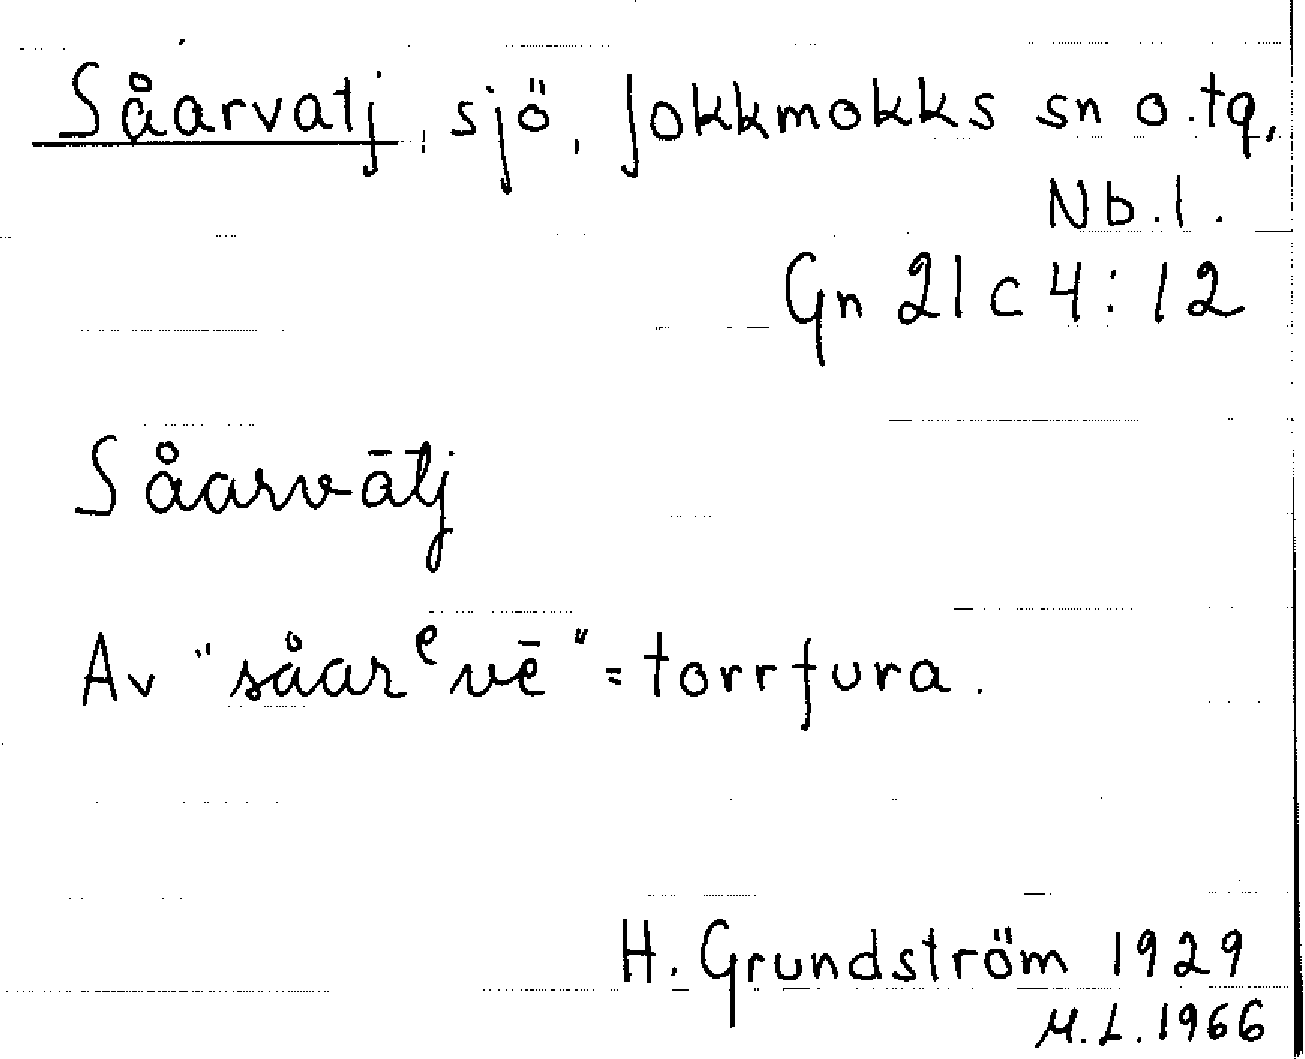 Såarvatj, sjö, Jokkmokks sn o. tg,
Nb. l.
Gn 21 c 4:12
Såarvātj
Av "såarᵉvē" = torrfura.
H. Grundström 1929
M. L. 1966